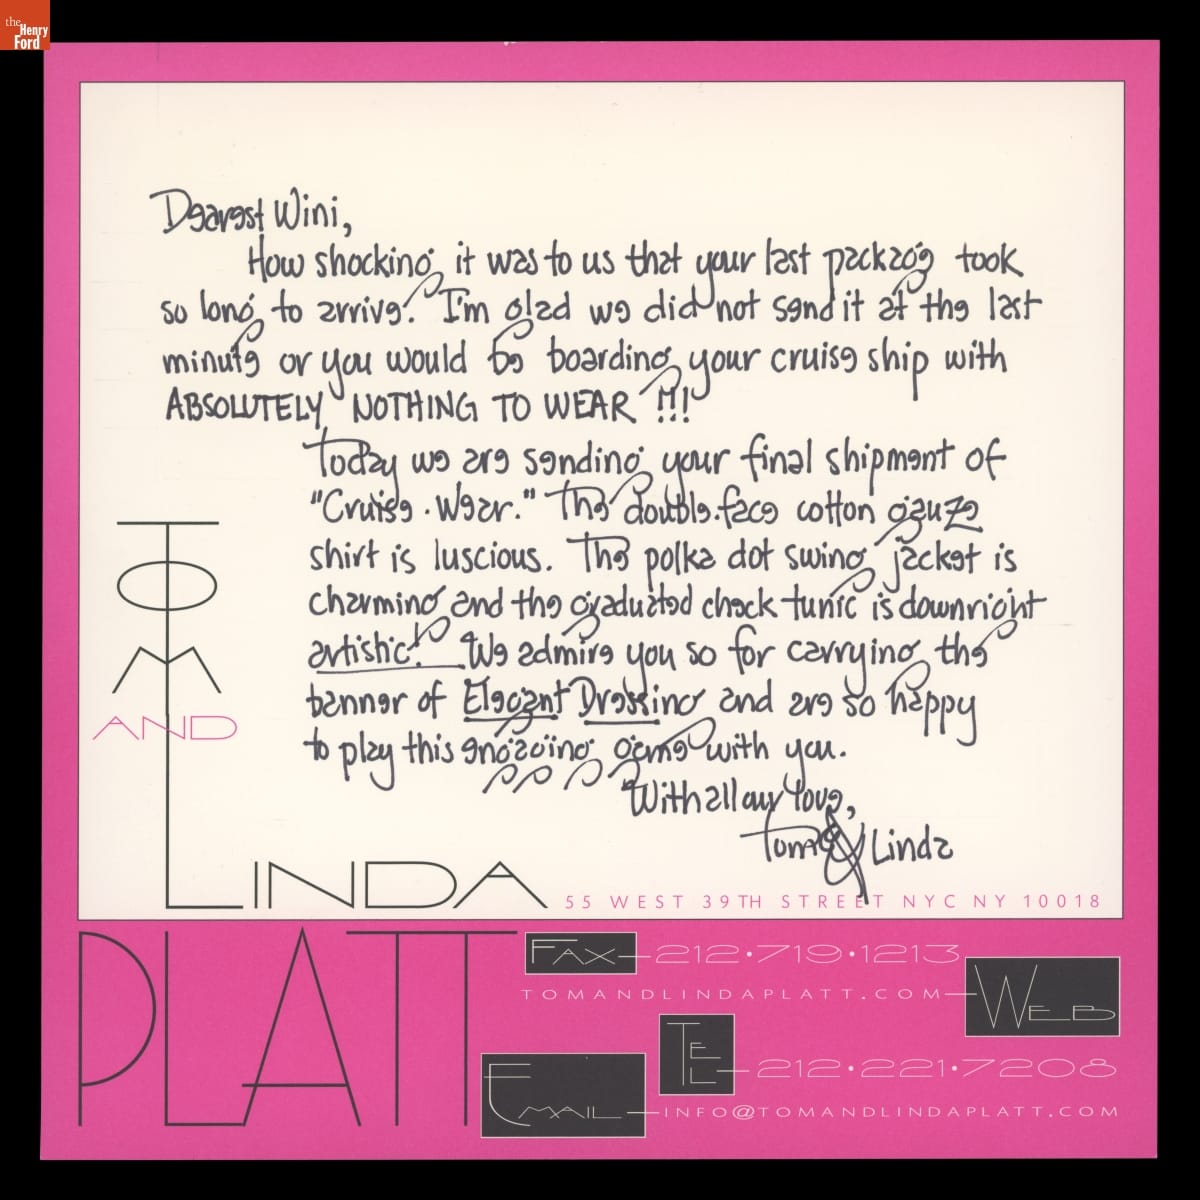 the Henry Ford
Dearest Wini,
How shocking it was to us that your last package took
so long to arrive. I'm glad we did not send it at the last
minute or you would be boarding your cruise ship with
ABSOLUTELY NOTHING TO WEAR !!!
Today we are sending your final shipment of
"Cruise-Wear." The double-face cotton gauze
shirt is luscious. The polka dot swing jacket is
charming and the graduated check tunic is downright
artistic! We admire you so for carrying the
banner of Elegant Dressing and are so happy
to play this engaging game with you.
With all our love,
Tom & Linda
TOM
AND
LINDA
55 WEST 39TH STREET NYC NY 10018
PLATT
FAX 212·719·1213
TOMANDLINDAPLATT.COM WEB
TEL 212·221·7208
EMAIL INFO@TOMANDLINDAPLATT.COM